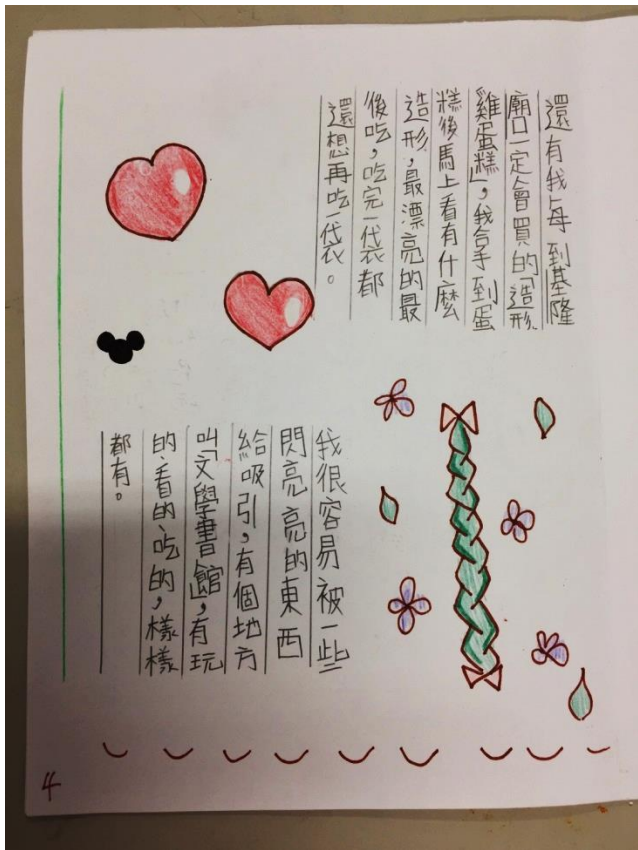 還有我每到基隆
廟口一定會買的「造形
雞蛋糕」,我拿到蛋
糕後馬上看有什麼
造形,最漂亮的最
後吃,吃完一袋都
還想再吃一袋。
我很容易被一些
閃亮亮的東西
給吸引,有個地方
叫「文學書館」,有玩
的、看的、吃的,樣樣
都有。
4